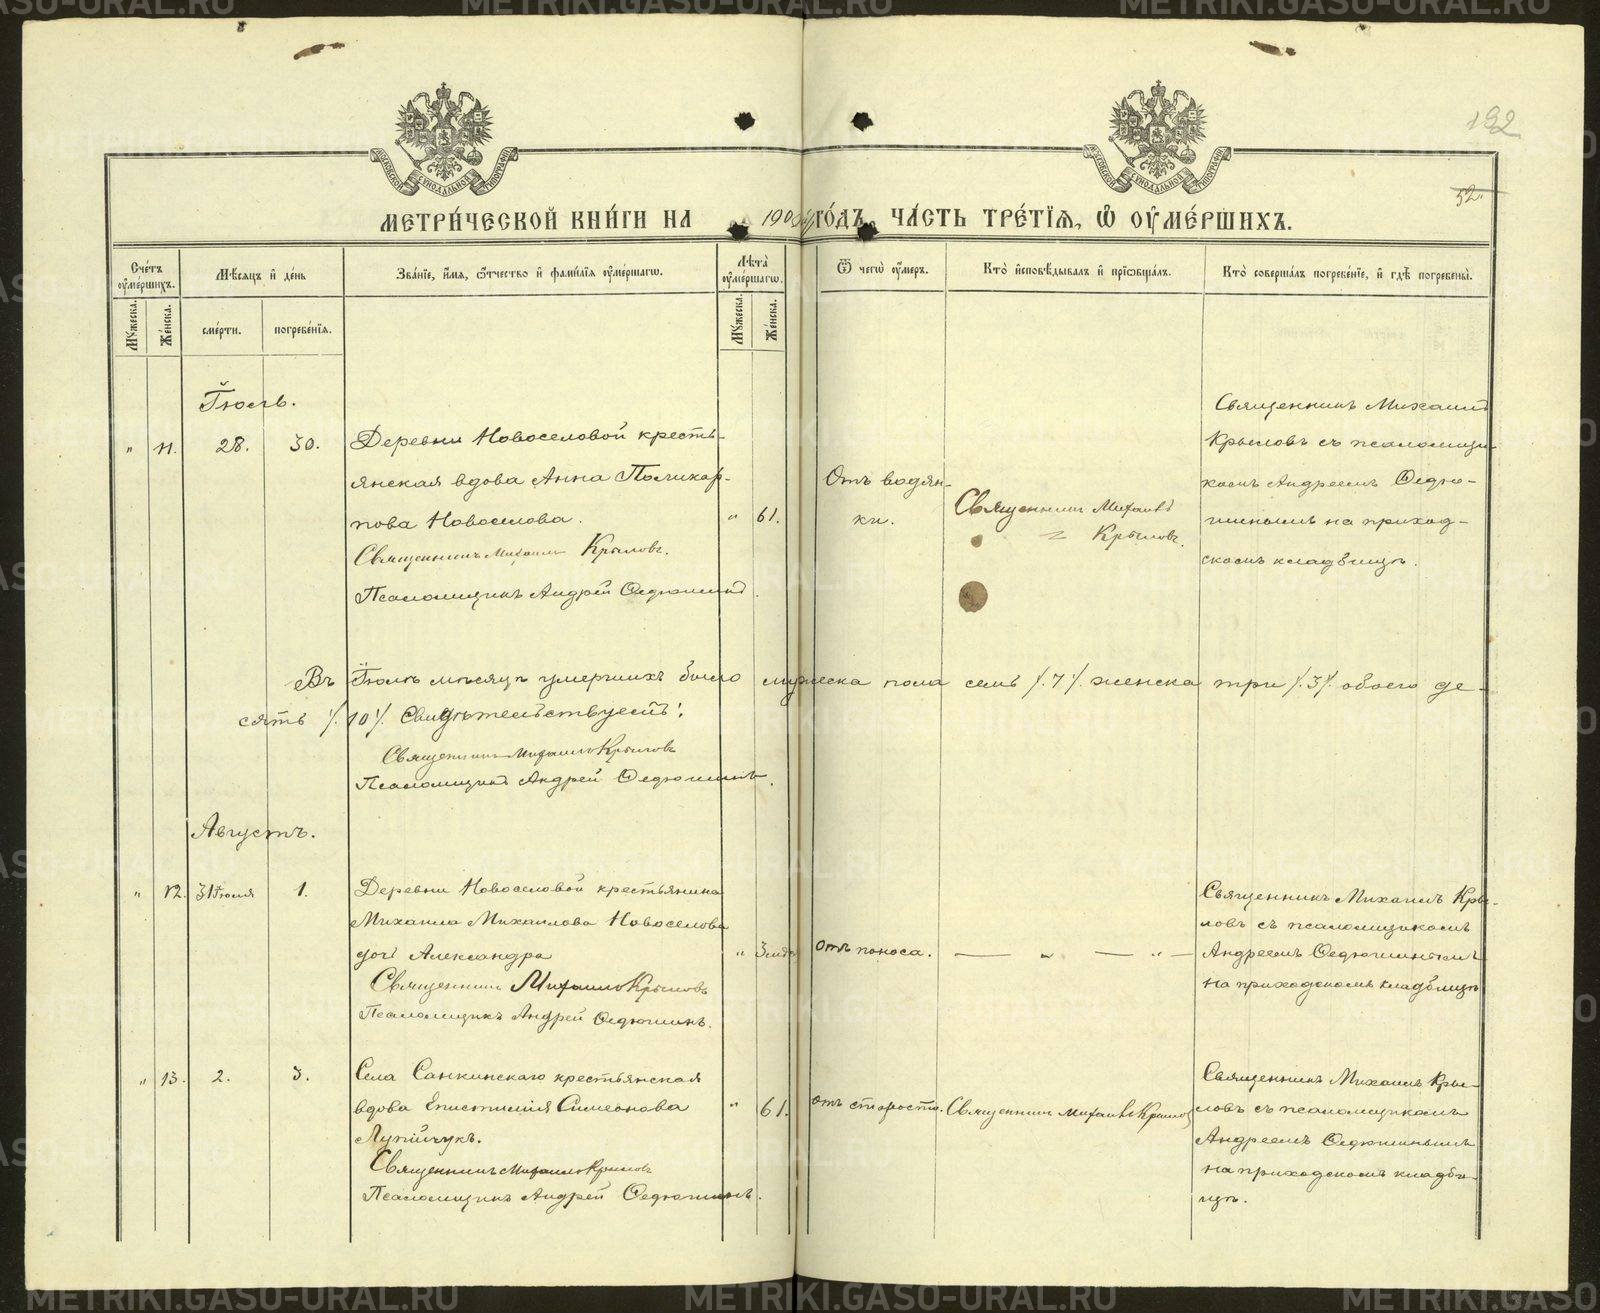 192
52.
МЕТРИ́ЧЕСКОЙ КНИ́ГИ НА 190 ГО́ДЪ, ЧА́СТЬ ТРЕ́ТІЯ, Ѡ ОУ҆МЕ́РШИХЪ.
Сче́тъ оу҆ме́ршихъ.
Мѣ́сяцъ и҆ де́нь
Зва́нїе, и҆́мя, ѻ҆́тчество и҆ фами́лїя оу҆ме́ршагѡ.
Лѣ́та оу҆ме́ршагѡ.
Ѿ чегѡ̀ оу҆́меръ.
Кто̀ и҆сповѣ́дывалъ и҆ прїѡбща́лъ.
Кто̀ соверша́лъ погребе́нїе, и҆ гдѣ̀ погребены̀.
Мꙋ́жеска.
Же́нска.
сме́рти.
погребе́нїѧ.
Мꙋ́жеска.
Же́нска.
Іюль.
" 11. 28. 30.
Деревни Новоселовой кресть-
янская вдова Анна Поликар-
пова Новоселова.
Священникъ Михаилъ Крыловъ.
Псаломщикъ Андрей Ѳедюшинъ.
" 61.
Отъ водян-
ки.
Священникъ Михаилъ
Крыловъ.
Священникъ Михаилъ
Крыловъ съ псаломщи-
комъ Андреемъ Ѳедю-
шинымъ на приход-
скомъ кладбищѣ.
Въ Іюлѣ мѣсяцѣ умершихъ было мужеска пола семь /.7/. женска три /.3/. обоего де-
сять /.10/. Свидѣтельствуемъ:
Священникъ Михаилъ Крыловъ
Псаломщикъ Андрей Ѳедюшинъ.
Августъ.
" 12. 31 Іюля 1.
Деревни Новоселовой крестьянина
Михаила Михаилова Новоселова
дочь Александра
Священникъ Михаилъ Крыловъ
Псаломщикъ Андрей Ѳедюшинъ.
"
отъ поноса.
— " — " —
Священникъ Михаилъ Кры-
ловъ съ псаломщикомъ
Андреемъ Ѳедюшинымъ
на приходскомъ кладбищѣ
" 13. 2. 3.
Села Санкинскаго крестьянская
вдова Епистимія Симеонова
Лупійчукъ.
Священникъ Михаилъ Крыловъ
Псаломщикъ Андрей Ѳедюшинъ.
" 61.
отъ старости.
Священникъ Михаилъ Крыловъ
Священникъ Михаилъ Кры-
ловъ съ псаломщикомъ
Андреемъ Ѳедюшинымъ
на приходскомъ кладби-
щѣ.
METRIKI.GASO-URAL.RU